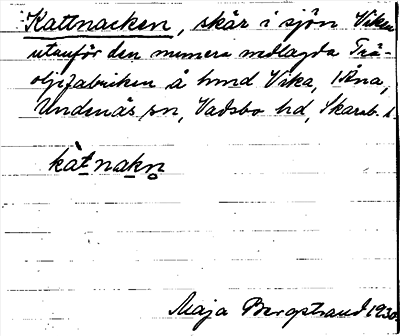 Kattnacken, skär i sjön Viken
utanför den numera nedlagda Trä-
oljefabriken å hmd Vika,
Undenäs sn, Vadsbo hd, Skarab. l.
kàtnakn
Maja Bergstrand 1930.